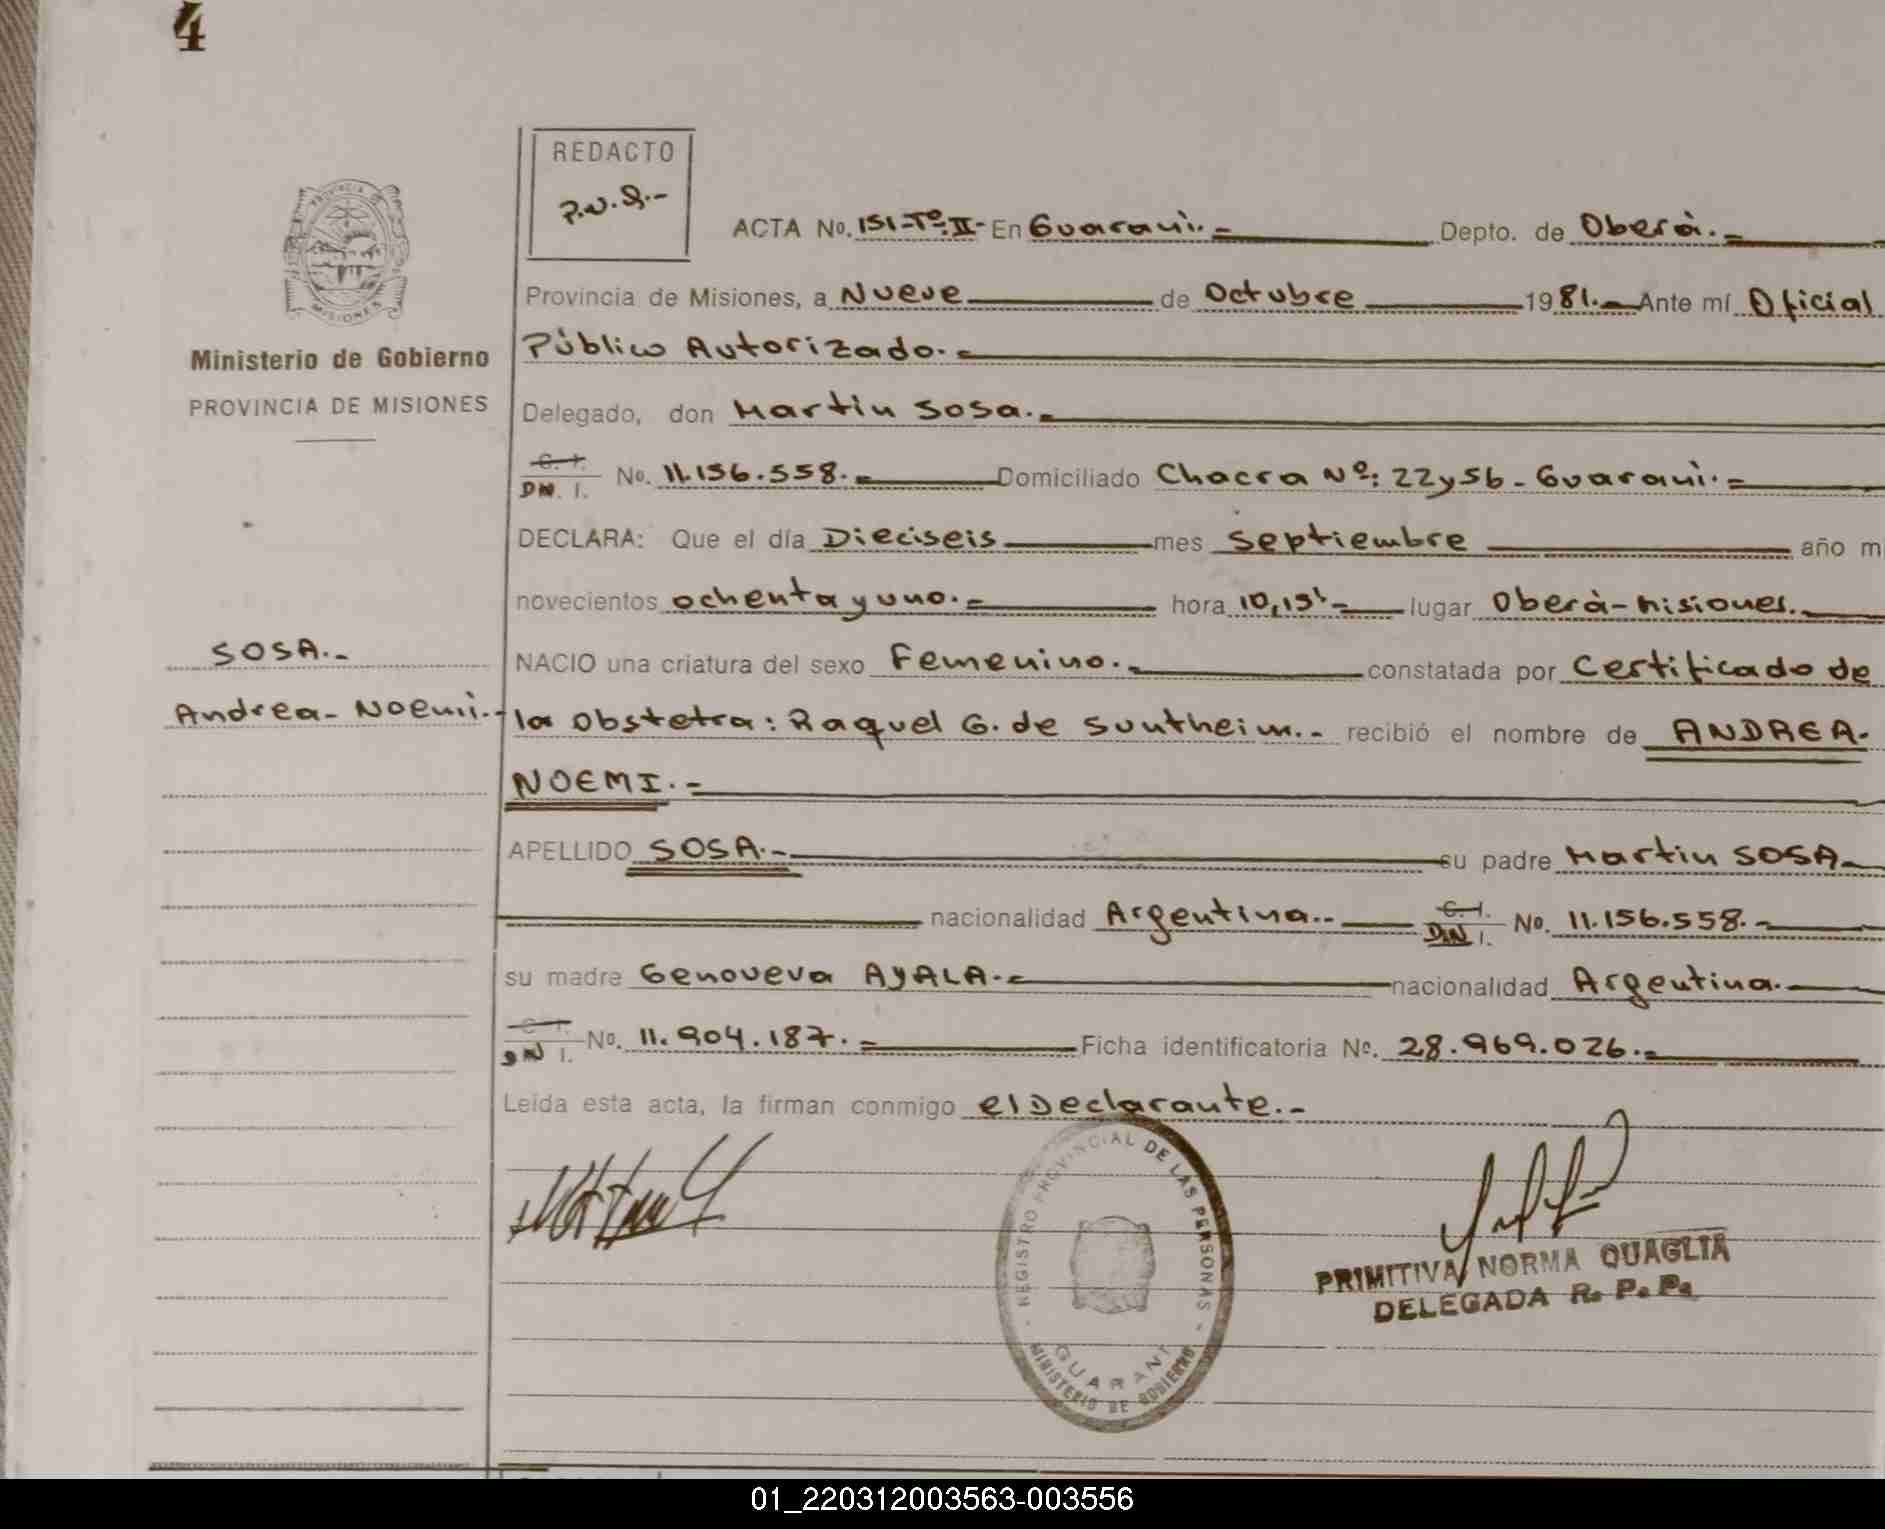 4
REDACTO
P.N.Q.-
PROVINCIA DE
MISIONES
Ministerio de Gobierno
PROVINCIA DE MISIONES
ACTA No. 151-Tº.II- En Guaraní.- Depto. de Oberà.-
Provincia de Misiones, a Nueve de Octubre 1981.- Ante mí Oficial
Público Autorizado.-
Delegado, don Martin Sosa.-
C. I.
DN. I. No. 11.156.558.- Domiciliado Chacra Nº: 22y5b - Guaraní.-
DECLARA: Que el día Dieciseis mes septiembre año m
novecientos ochenta y uno.- hora 10,15'- lugar Oberà-Misiones.-
SOSA.-
NACIO una criatura del sexo Femenino.- constatada por Certificado de
Andrea-Noemi.-
la Obstetra: Raquel G. de Suntheim.- recibió el nombre de ANDREA-
NOEMI.-
APELLIDO SOSA.- su padre Martin SOSA-
nacionalidad Argentina.- C. I.
DN I. No. 11.156.558.-
su madre Genoveva AYALA.- nacionalidad Argentina.-
C. I.
DN I. No. 11.904.187.- Ficha identificatoria No. 28.969.026.-
Leída esta acta, la firman conmigo el Declarante.-
REGISTRO PROVINCIAL DE LAS PERSONAS
GUARANI
MINISTERIO DE GOBIERNO
PRIMITIVA NORMA QUAGLIA
DELEGADA R. P. P.
01_220312003563-003556